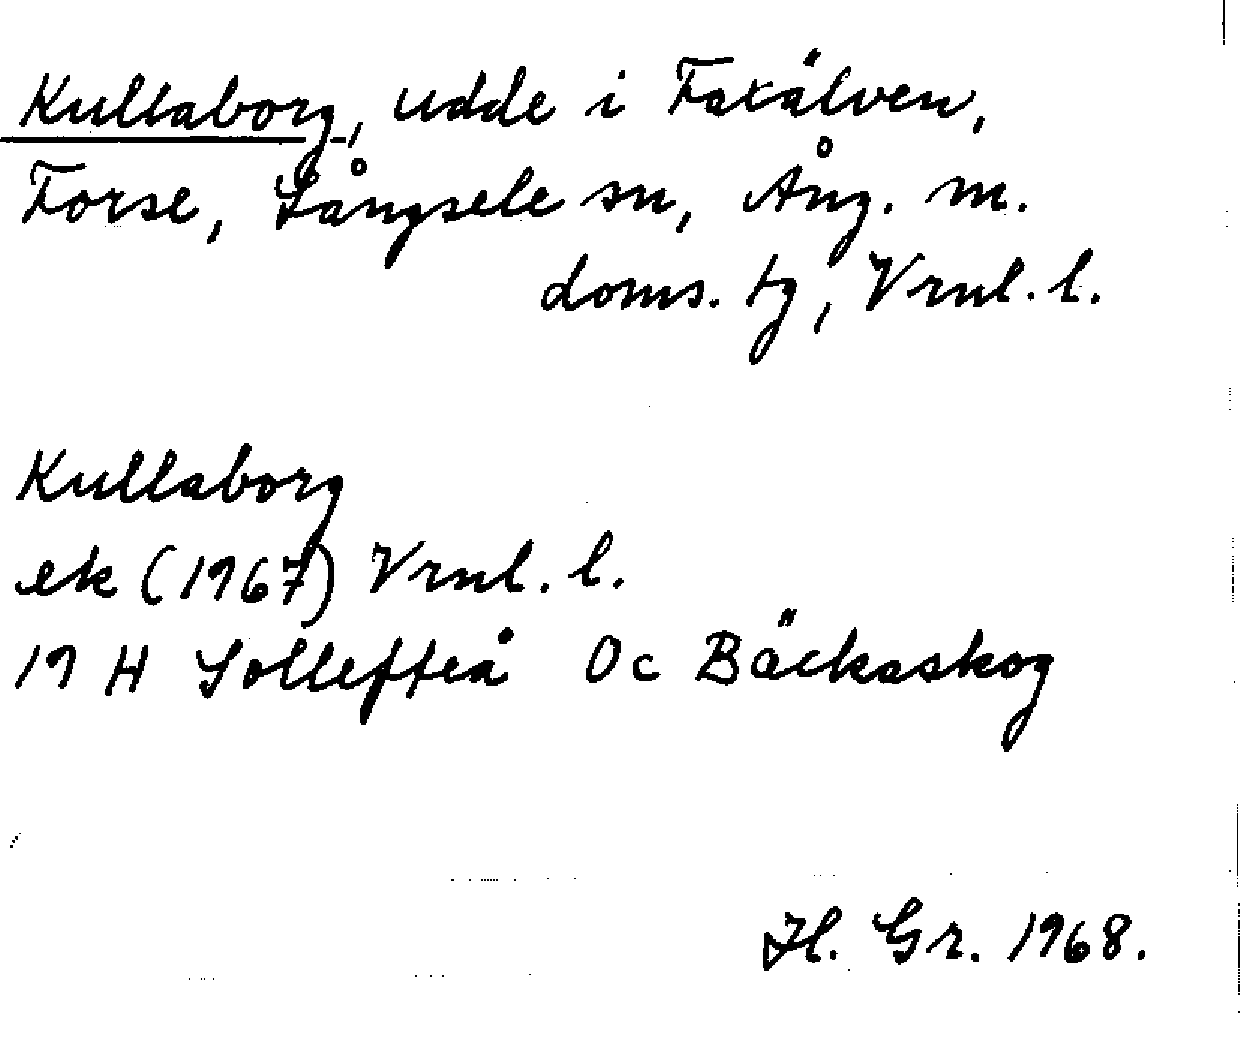 Kullaborg, udde i Faxälven,
Forse, Långsele sn, Ång. m.
doms. tg, Vrnl. l.
Kullaborg
ek (1967) Vrnl. l.
19 H Sollefteå Oc Bäckaskog
H. Gr. 1968.